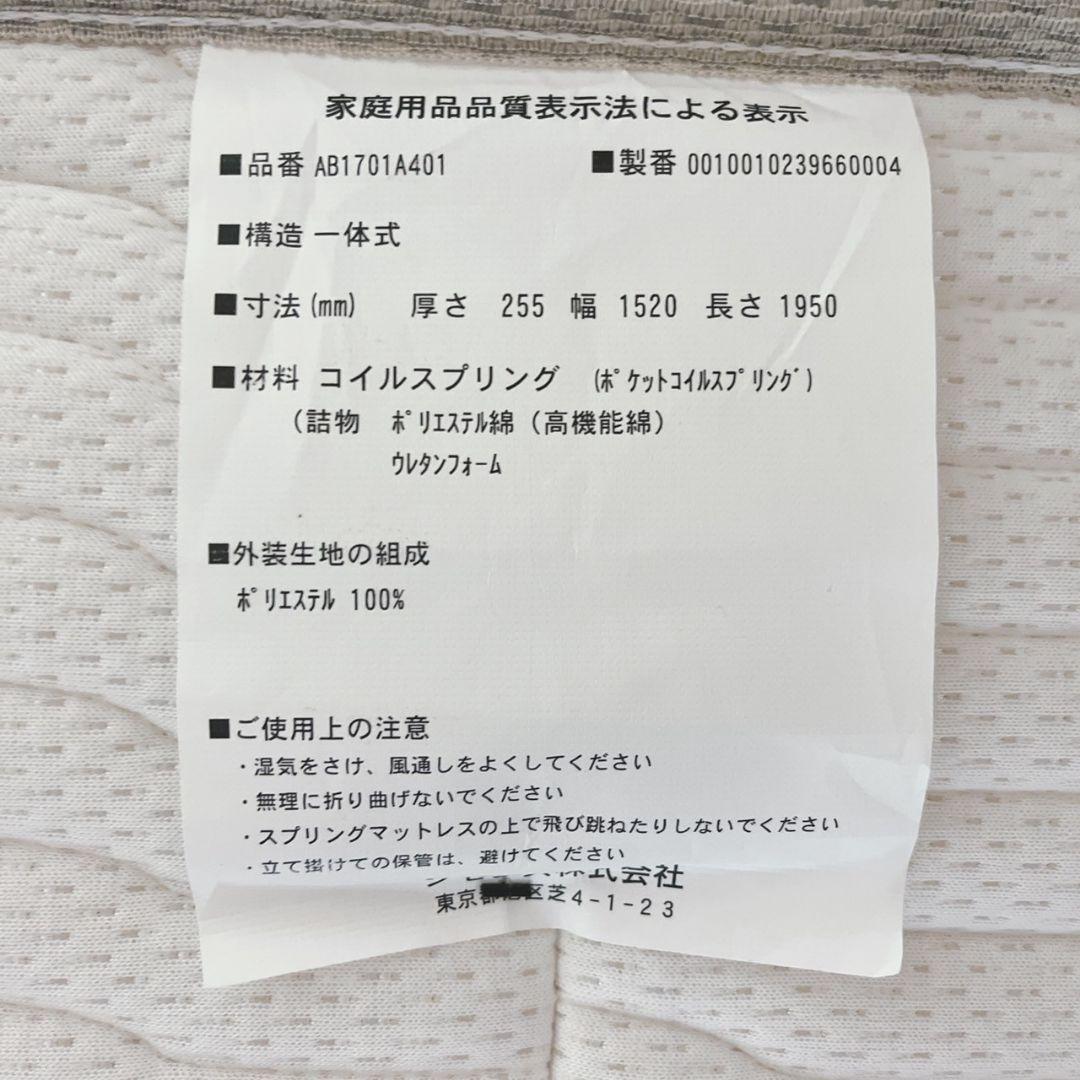 家庭用品品質表示法による表示
■品番 AB1701A401 ■製番 0010010239660004
■構造 一体式
■寸法(mm) 厚さ 255 幅 1520 長さ 1950
■材料 コイルスプリング (ﾎﾟｹｯﾄｺｲﾙｽﾌﾟﾘﾝｸﾞ)
(詰物 ﾎﾟﾘｴｽﾃﾙ綿(高機能綿)
ｳﾚﾀﾝﾌｫｰﾑ
■外装生地の組成
ﾎﾟﾘｴｽﾃﾙ 100%
■ご使用上の注意
・湿気をさけ、風通しをよくしてください
・無理に折り曲げないでください
・スプリングマットレスの上で飛び跳ねたりしないでください
・立て掛けての保管は、避けてください
株式会社
東京都 区芝4-1-23